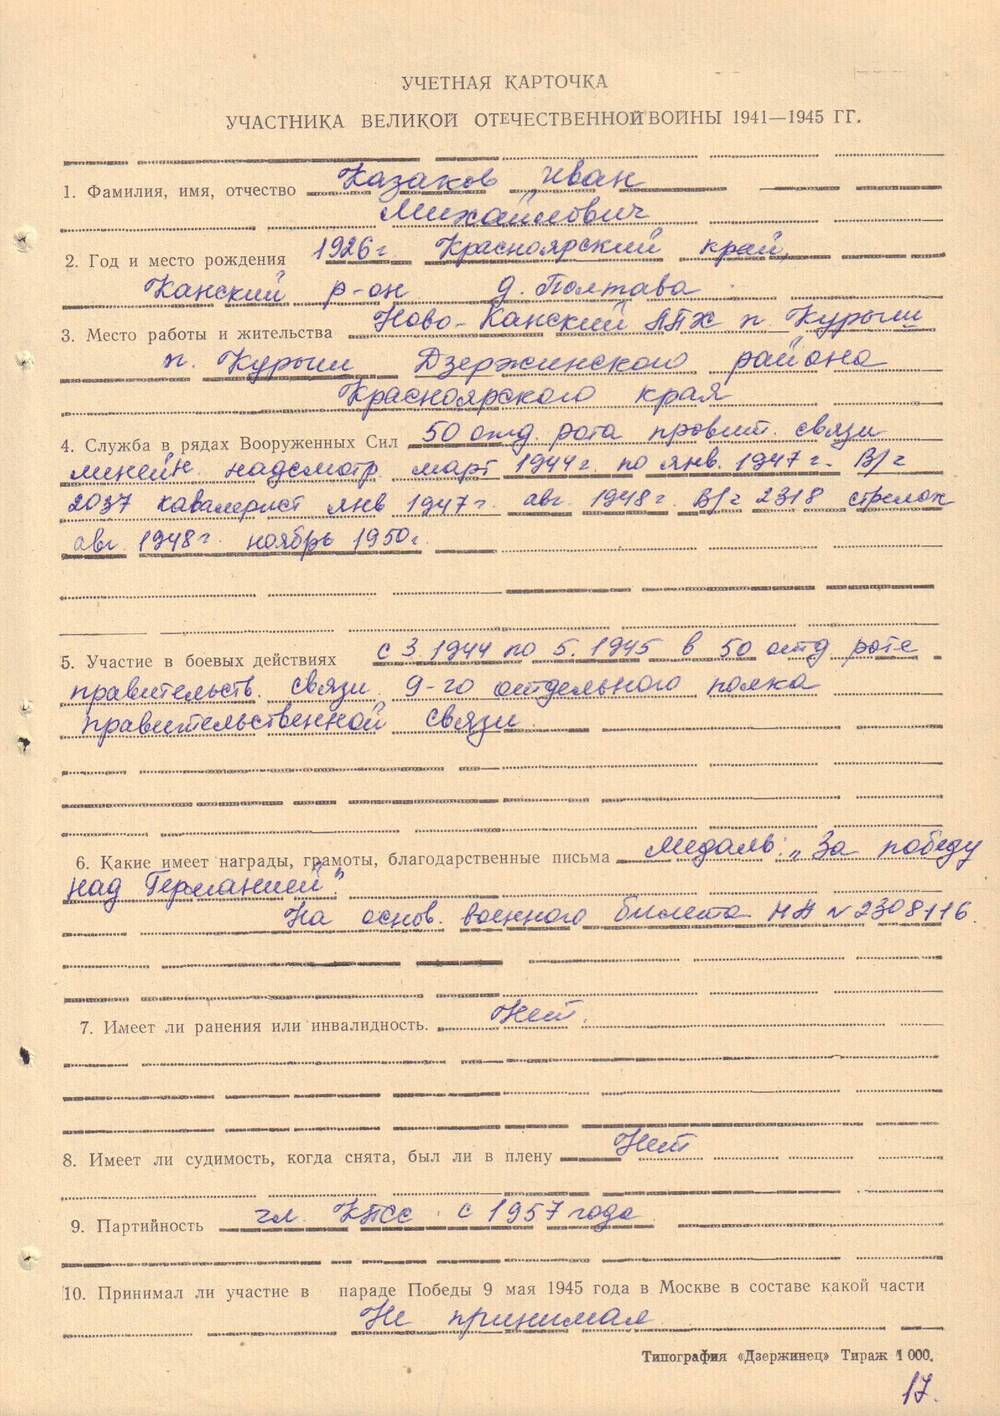 УЧЕТНАЯ КАРТОЧКА
УЧАСТНИКА ВЕЛИКОЙ ОТЕЧЕСТВЕННОЙ ВОЙНЫ 1941—1945 ГГ.
1. Фамилия, имя, отчество Казаков Иван
Михайлович
2. Год и место рождения 1926 г. Красноярский край,
Канский р-он д. Полтава
3. Место работы и жительства Ново-Канский ЛПХ п. Курыш
п. Курыш Дзержинского района
Красноярского края
4. Служба в рядах Вооруженных Сил 50 отд. рота правит. связи
линейн. надсмотр. март 1944 г. по янв. 1947 г. В/ч
2037 кавалерист янв 1947 г. авг. 1948 г. В/ч 2318 стрелок
авг. 1948 г. ноябрь 1950 г.
5. Участие в боевых действиях с 3.1944 по 5.1945 в 50 отд роте
правительств. связи 9-го отдельного полка
правительственной связи.
6. Какие имеет награды, грамоты, благодарственные письма Медаль: „За победу
над Германией".
На основ. военного билета НА № 2308116.
7. Имеет ли ранения или инвалидность. Нет.
8. Имеет ли судимость, когда снята, был ли в плену Нет
9. Партийность чл. КПСС с 1957 года
10. Принимал ли участие в параде Победы 9 мая 1945 года в Москве в составе какой части
Не принимал
Типография «Дзержинец» Тираж 1 000.
17.